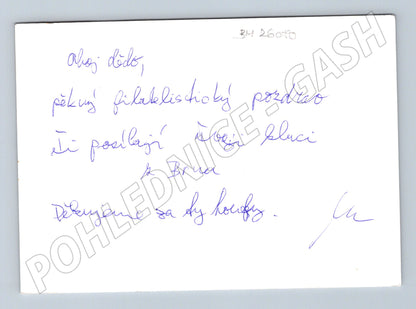 BH 26070
Ahoj dědo,
pěkný filatelistický pozdrav
Ti posílají Tvoji kluci
z Brna
Děkujeme za ty houby.
POHLEDNICE - GASH